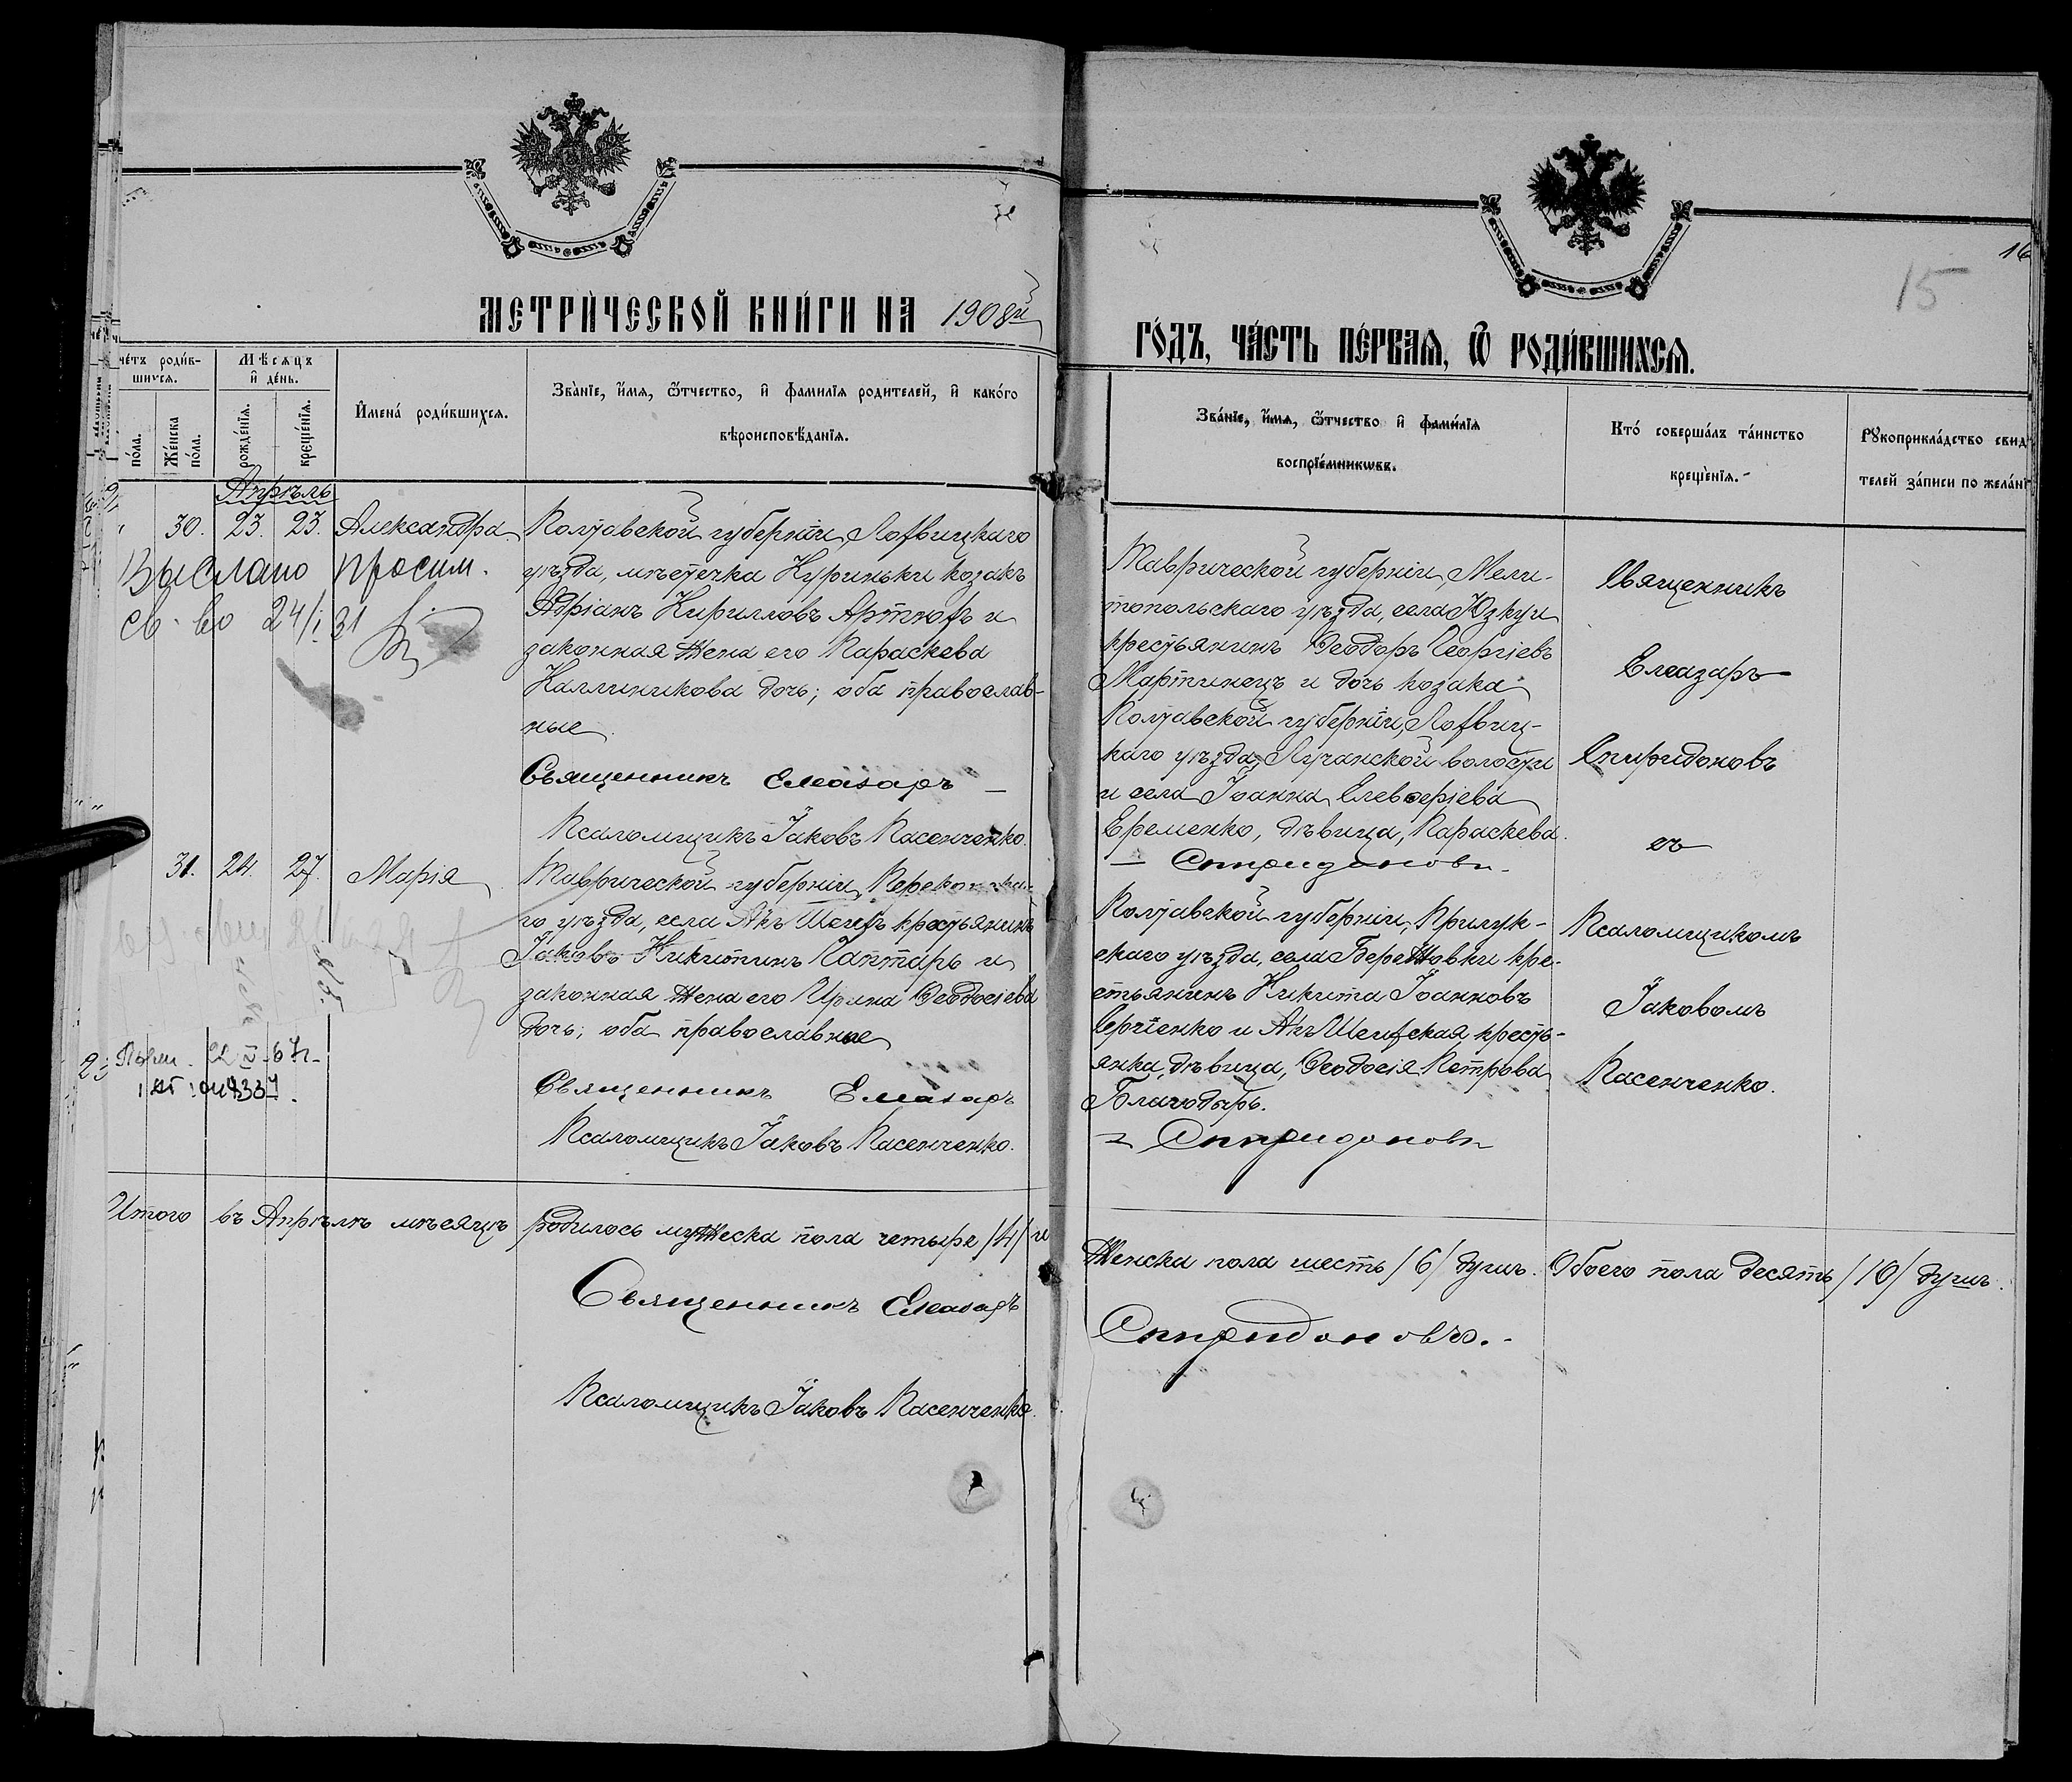 16
15
МЕТРИЧЕСКОЙ КНИГИ НА 1908й
ГОДЪ, ЧАСТЬ ПЕРВАЯ, Ѿ РОДИВШИХСЯ.
четъ родив-
шихся.
пола.
Женска
пола.
Мѣсяцъ
и день.
рожденія.
крещенія.
Имена родившихся.
Званіе, имя, ѿтчество, и фамилія родителей, и какого
вѣроисповѣданія.
Званіе, имя, ѿтчество и фамилія
воспріемниковъ.
Кто совершалъ таинство
крещенія.
Рукоприкладство свид
телей записи по желані
Апрѣль
30. 23. 23. Александра
Выслано просим.
св-во 24/I 31
Полтавской губерніи, Лохвицкаго
уѣзда, мѣстечка Куриньки козакъ
Адріанъ Кирилловъ Артюхъ и
законная жена его Параскева
Каллиникова дочь; оба православ-
ные
Священникъ Елеазаръ
Псаломщикъ Іаковъ Пасенченко.
Таврической губерніи, Мели-
топольскаго уѣзда, села Юзкуи
крестьянинъ Ѳеодоръ Георгіевъ
Мартинецъ и дочь козака
Полтавской губерніи, Лохвиц-
каго уѣзда, Лучанской волости
и села Іоанна Елевѳеріева
Еременко, дѣвица, Параскева.
Спиридоновъ.
Священникъ
Елеазаръ
Спиридоновъ
съ
31. 24. 27. Марія
Таврической губерніи, Перекопска-
го уѣзда, села Акъ Шеихъ крестьянинъ
Іаковъ Никитинъ Саптарь и
законная жена его Ирина Ѳеодосіева
дочь; оба православные
Священникъ Елеазаръ
Псаломщикъ Іаковъ Пасенченко.
Полтавской губерніи, Прилук-
скаго уѣзда, села Бережовки кре-
стьянинъ Никита Іоанновъ
Сергіенко и Акъ Шеихская кресть-
янка, дѣвица, Ѳеодосія Петрова
Благодырь.
Спиридоновъ
Псаломщикомъ
Іаковомъ
Пасенченко.
Итого въ Апрѣлѣ мѣсяцѣ родилось мужеска пола четыре /4/ и
женска пола шесть /6/ душъ. Обоего пола десять /10/ душъ.
Священникъ Елеазаръ
Спиридоновъ.
Псаломщикъ Іаковъ Пасенченко.